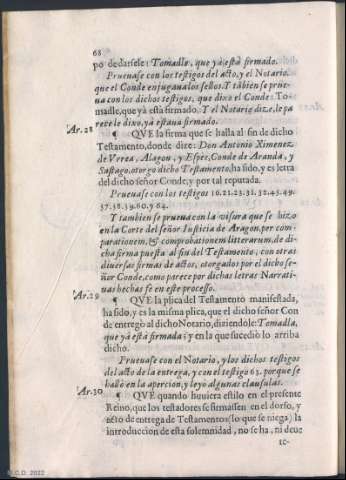 68
po de darsele: Tomadla, que yà està firmado.
Prueuase con los testigos del acto, y el Notario.
que el Conde enjugaua los sellos. Y tābien se prue-
ua con los dichos testigos, que dixo el Conde: To-
madlle, que yà està firmado. Y el Notario dize, le pa
rece le dixo, yà estaua firmado.
Ar. 28 ¶ QVE la firma que se halla al fin de dicho
Testamento, donde dize: Don Antonio Ximenez
de Vrrea, Alagon, y Espès, Conde de Aranda, y
Sastago, otorgo dicho Testamento, ha sido, y es letra
del dicho señor Conde, y por tal reputada.
Prueuase con los testigos 16. 21. 23. 31. 32. 45. 49.
57. 58. 59. 60. y 64.
Y tambien se prueua con la visura que se hizo
en la Corte del señor Iusticia de Aragon, per com-
parationem, & comprobationem litterarum, de di-
cha firma puesta al fin del Testamento, con otras
diuersas firmas de actos, otorgados por el dicho se-
ñor Conde, como parece por dichas letras Narrati-
uas hechas fe en este processo.
Ar. 29 ¶ QVE la plica del Testamēto manifestada,
ha sido, y es la misma plica, que el dicho señor Con
de entregò al dicho Notario, diziendole: Tomadla,
que yà està firmada; y en la que sucediò lo arriba
dicho.
Prueuase con el Notario, y los dichos testigos
del acto de la entrega, y con el testigo 63. porque se
hallò en la apercion, y leyò algunas clausulas.
Ar. 30 ¶ QVE quando huuiera estilo en el presente
Reino, que los testadores se firmassen en el dorso, y
acto de entrega de Testamentos (lo que se niega) la
introduccion de esta solemnidad, no se ha, ni deue
re-
B.C.D. 2022